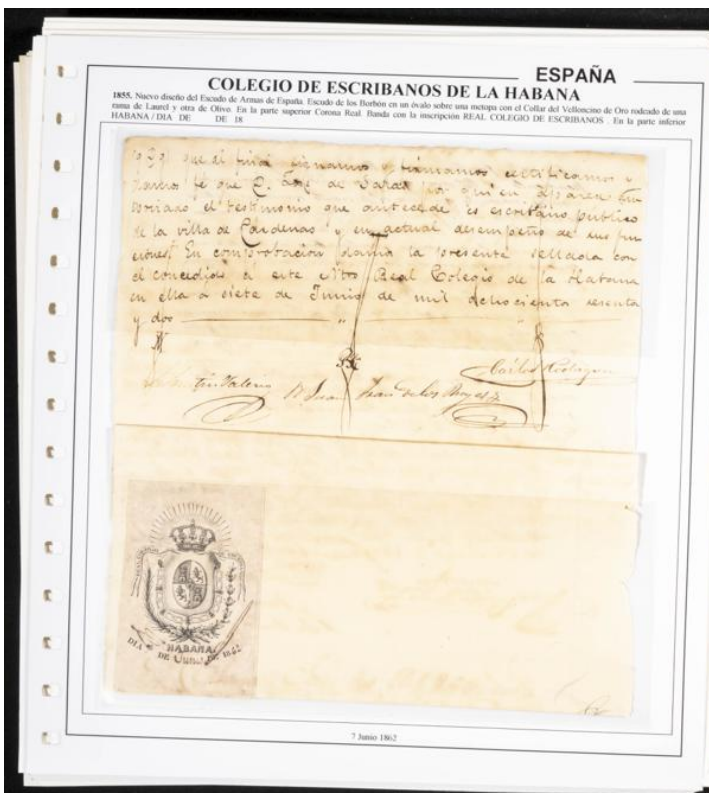 ESPAÑA
COLEGIO DE ESCRIBANOS DE LA HABANA
1855. Nuevo diseño del Escudo de Armas de España. Escudo de los Borbón en un óvalo sobre una metopa con el Collar del Vellocino de Oro rodeado de una
rama de Laurel y otra de Olivo. En la parte superior Corona Real. Banda con la inscripción REAL COLEGIO DE ESCRIBANOS . En la parte inferior
HABANA / DIA DE DE 18
que al final firmamos certificamos y
damos fé que D. José de por quien aparece
el testimonio que antecede es escribano publico
de la villa de Cárdenas y en actual desempeño de sus fun
ciones. En comprobacion damos la presente sellada con
el concedido á este Ntro Real Colegio de la Habana
en ella a siete de Junio de mil ochocientos sesenta
y dos
Carlos Rodriguez
Valerio Juan de los Reyes
HABANA
DIA DE Junio DE 1862
7 Junio 1862